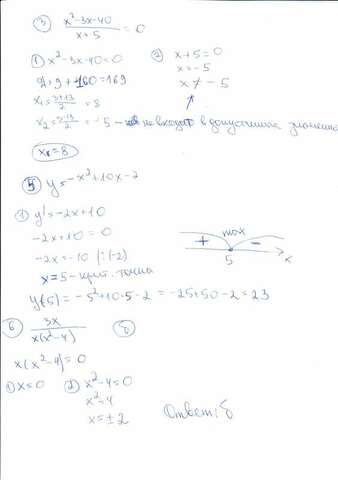 ③ x²-3x-40 / x+5 = 0
① x²-3x-40=0 ② x+5=0
Д=9+160=169 x=-5
x₁=3+13/2=8 x≠-5
x₂=3-13/2=-5 - не входит в допустимые значения
x=8
⑤ y=-x²+10x-2
① y'=-2x+10
-2x+10=0 max
-2x=-10 |:(-2) + -
x=5-крит. точка 5 x
y(5)=-5²+10·5-2=-25+50-2=23
⑥ 3x / x(x²-4) Б
x(x²-4)=0
① x=0 ② x²-4=0
x²=4
x=±2 Ответ: Б